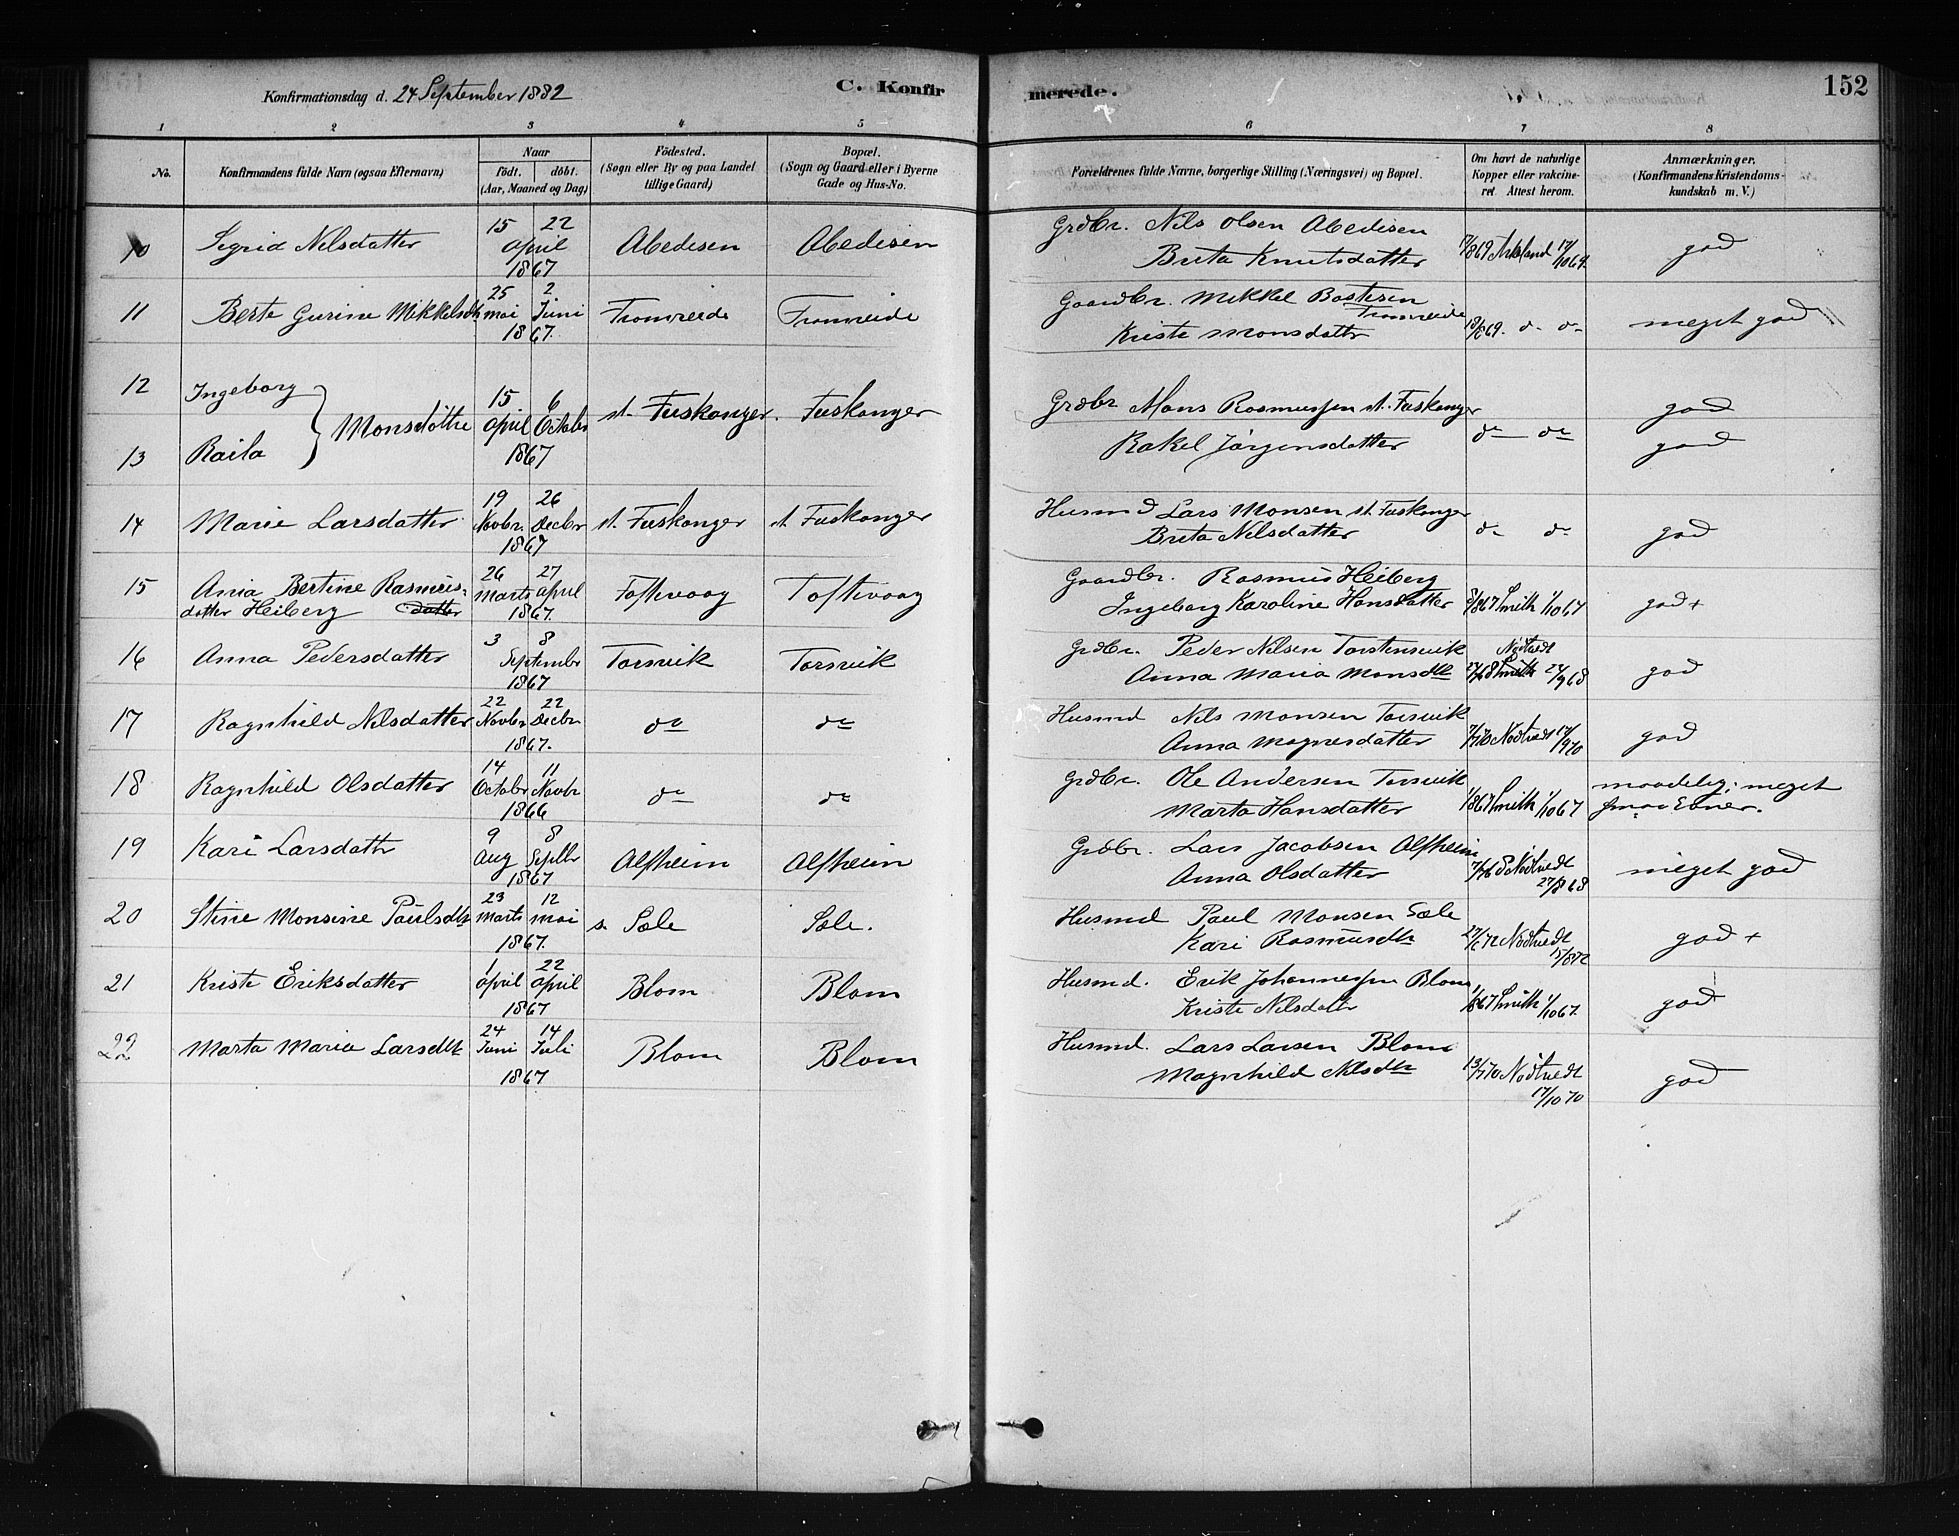 Konfirmationsdag d. 24 September 1882
C. Konfirmerede.
152
1 2 3 4 5 6 7 8
No.
Konfirmandens fulde Navn (ogsaa Efternavn)
Naar
født. døbt.
(Aar, Maaned og Dag)
Fødested.
(Sogn eller By og paa Landet
tillige Gaard)
Bopæl.
(Sogn og Gaard eller i Byerne
Gade og Hus-No.
Forældrenes fulde Navne, borgerlige Stilling (Næringsvei) og Bopæl.
Om havt de naturlige
Kopper eller vakcine-
ret. Attest herom.
Anmærkninger.
(Konfirmandens Kristendoms-
kundskab m. V.)
10 Sigrid Nilsdatter 15 22 April 1867 Abedisen Abedisen Grdbr. Nils Olsen Abedisen
Brita Knutsdatter god
11 Berte Gurine Mikkelsdtr 25 mai 2 Juni 1867. Tromreide Tromreide Gaardbr. Mikkel Bastesen
Tromreide
Kriste Monsdatter 18/869. do do meget god
12 Ingeborg
13 Raila
Monsdøttre 15 April 6 Octobr 1867 st. Fuskanger. Fuskanger Grdbr Mons Rasmussen st. Fuskanger
Rakel Jørgensdatter do do god
god
14 Marie Larsdatter 19 Novbr. 26 Decbr 1867 st. Fuskanger st. Fuskanger Husmd Lars Monsen st. Fuskanger
Brita Nilsdatter do do god
15 Anna Bertine Rasmus-
datter Heiberg datter 26 Marts 27 April 1867. Toftevaag Toftevaag Gaardbr. Rasmus Heiberg
Ingeborg Karoline Hansdatter Smith 1/1067 god +
16 Anna Pedersdatter 3 8 September 1867 Torsvik Torsvik Grdbr. Peder Nilsen Torstensvik
Anna Maria Monsdtr Nødtvedt Smith 27/968 god
17 Ragnhild Nilsdatter 22 Novbr 22 Decbr 1867. do do Husmd Nils Monsen Torsvik
Anna Magnesdatter 7/770 Nødtvedt 17/970 god
18 Ragnhild Olsdatter 14 Octobr 11 Novbr 1866 do do Grdbr. Ole Andersen Torsvik
Marta Hansdatter 1/867 Smith 1/1067 maadelig; meget
smaa Evner.
19 Kari Larsdattr 9 Aug 8 Septbr 1867 Alfheim Alfheim Grdbr. Lars Jacobsen Alfheim
Anna Olsdatter Nødtvedt
27/868 meget god
20 Stine Monsine Paulsdtr 23 Marts 12 Mai 1867. s. Sæle Sæle. Husmd Paul Monsen Sæle
Kari Rasmusdtr Nødtvedt
15/872 god +
21 Kriste Eriksdatter 1 April 22 April 1867 Blom Blom Husmd. Erik Johannessen Blom,
Kriste Nilsdatr 1/867 Smith 1/1067 god
22 Marta Maria Larsdtr 24 Juni 14 Juli 1867 Blom Blom Husmd. Lars Larsen Blom
Magnhild Nilsdtr 13/770 Nødtvedt
17/1070 god